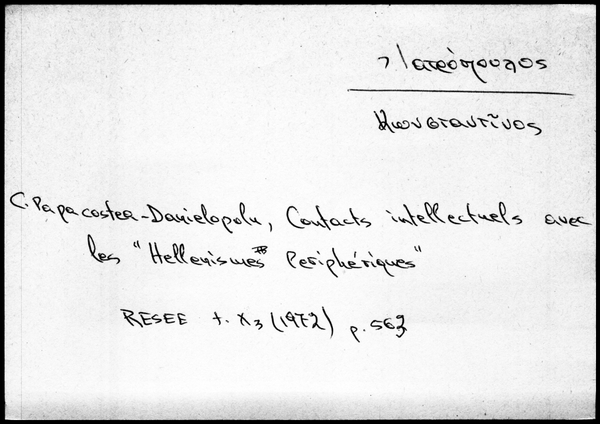 Ἰατρόπουλος
Κωνσταντῖνος
C. Papacostea-Danielopolu, Contacts intellectuels avec
les "Hellenismes Periphériques"
RESEE t. X3 (1972) p. 563